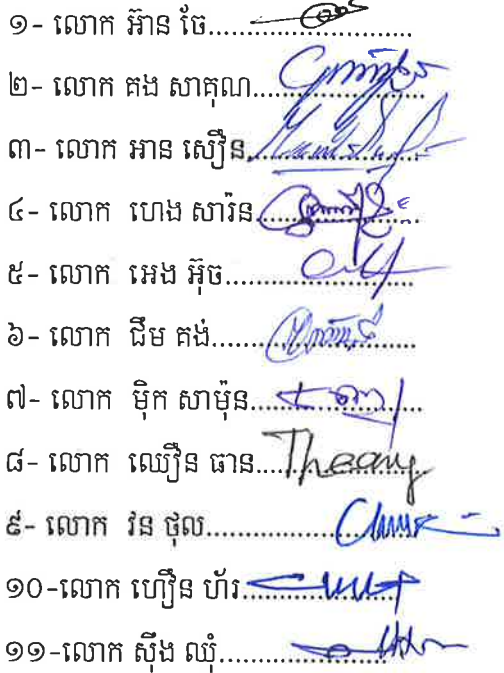 ១- លោក អ៊ាន ចែ..............................
២- លោក គង សាគុណ..........................
៣- លោក អាន សឿន..........................
៤- លោក ហេង សារ៉ន........................
៥- លោក អេង អ៊ុច............................
៦- លោក ជឹម គង់.............................
៧- លោក ម៉ិក សាម៉ុន..........................
៨- លោក ឈឿន ធាន.... Theany
៩- លោក វន ថុល................................
១០-លោក ហឿន ហ័រ..........................
១១-លោក ស៊ឹង ឈុំ............................